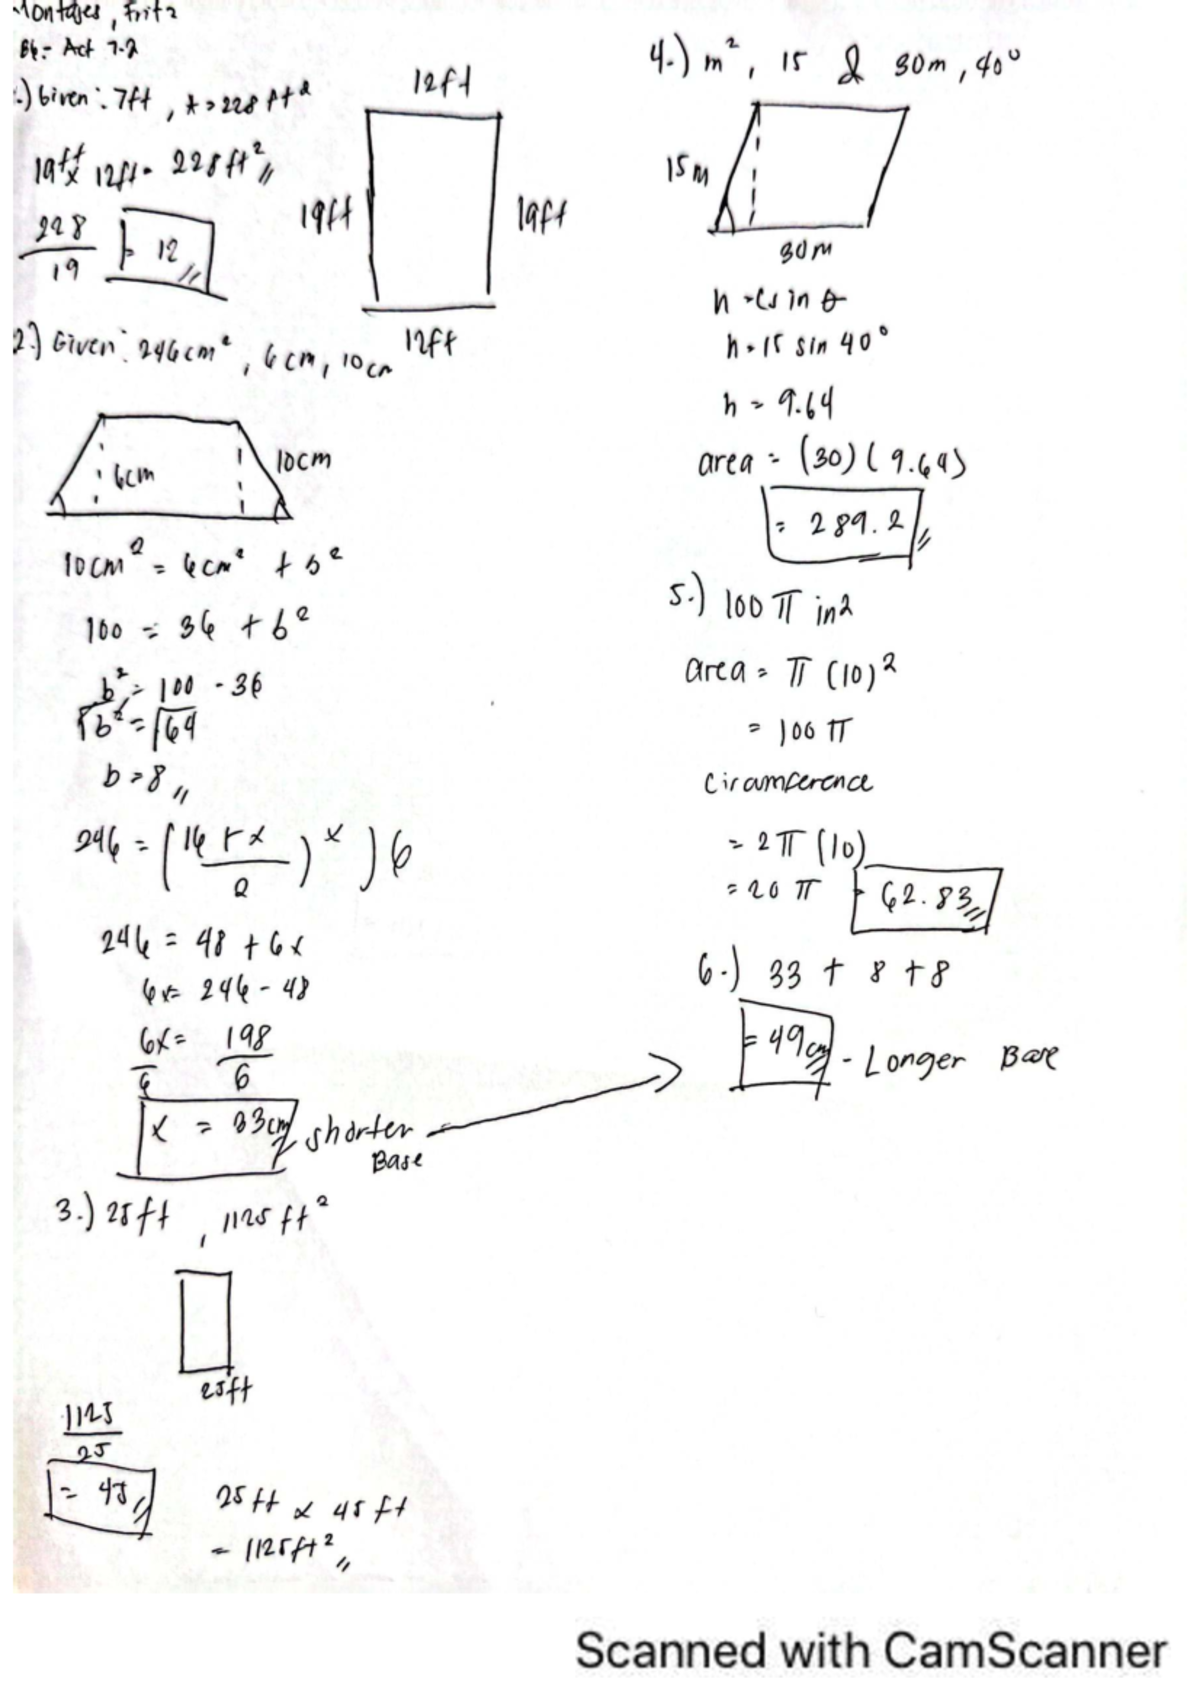 Montajes, Fritz
B6- Act 7.2
1.) Given: 7ft, A=228 ft²
12ft
19ft x 12ft = 228ft²
19ft
19ft
228/19 = 12
12ft
2.) Given: 246cm², 6cm, 10cm
6cm
10cm
10cm² = 6cm² + b²
100 = 36 + b²
b² = 100 - 36
√b² = √64
b = 8
246 = (16 + x / 2) x ) 6
246 = 48 + 6x
6x = 246 - 48
6x/6 = 198/6
x = 33cm shorter Base
3.) 25ft, 1125 ft²
25ft
1125/25
= 45
25ft x 45ft
= 1125ft²
4.) m², 15 & 30m, 40°
15m
30m
h = c sin θ
h = 15 sin 40°
h = 9.64
area = (30)(9.64)
= 289.2
5.) 100 π in2
area = π (10)²
= 100 π
Circumference
= 2π (10)
= 20 π = 62.83
6.) 33 + 8 + 8
= 49cm - Longer Base
Scanned with CamScanner